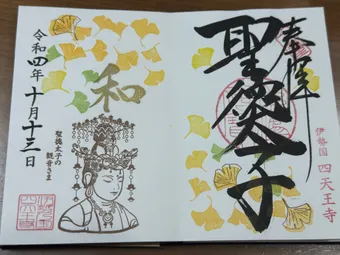 奉拝
聖徳太子
伊勢国 四天王寺
和
聖徳太子の
観音さま
令和四年十月十三日